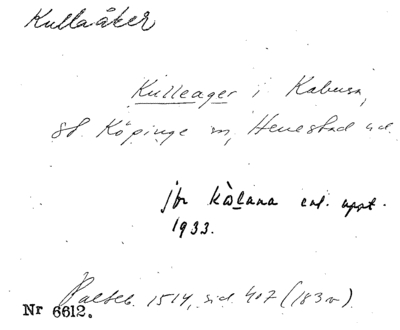 Kullaåker
Kulleager i Kabusa,
St. Köpinge sn, Herrestad hd.
jfr kå̀lana enl. uppt.
1933.
Palteb. 1514, sid. 407 (183 v).
Nr 6612.